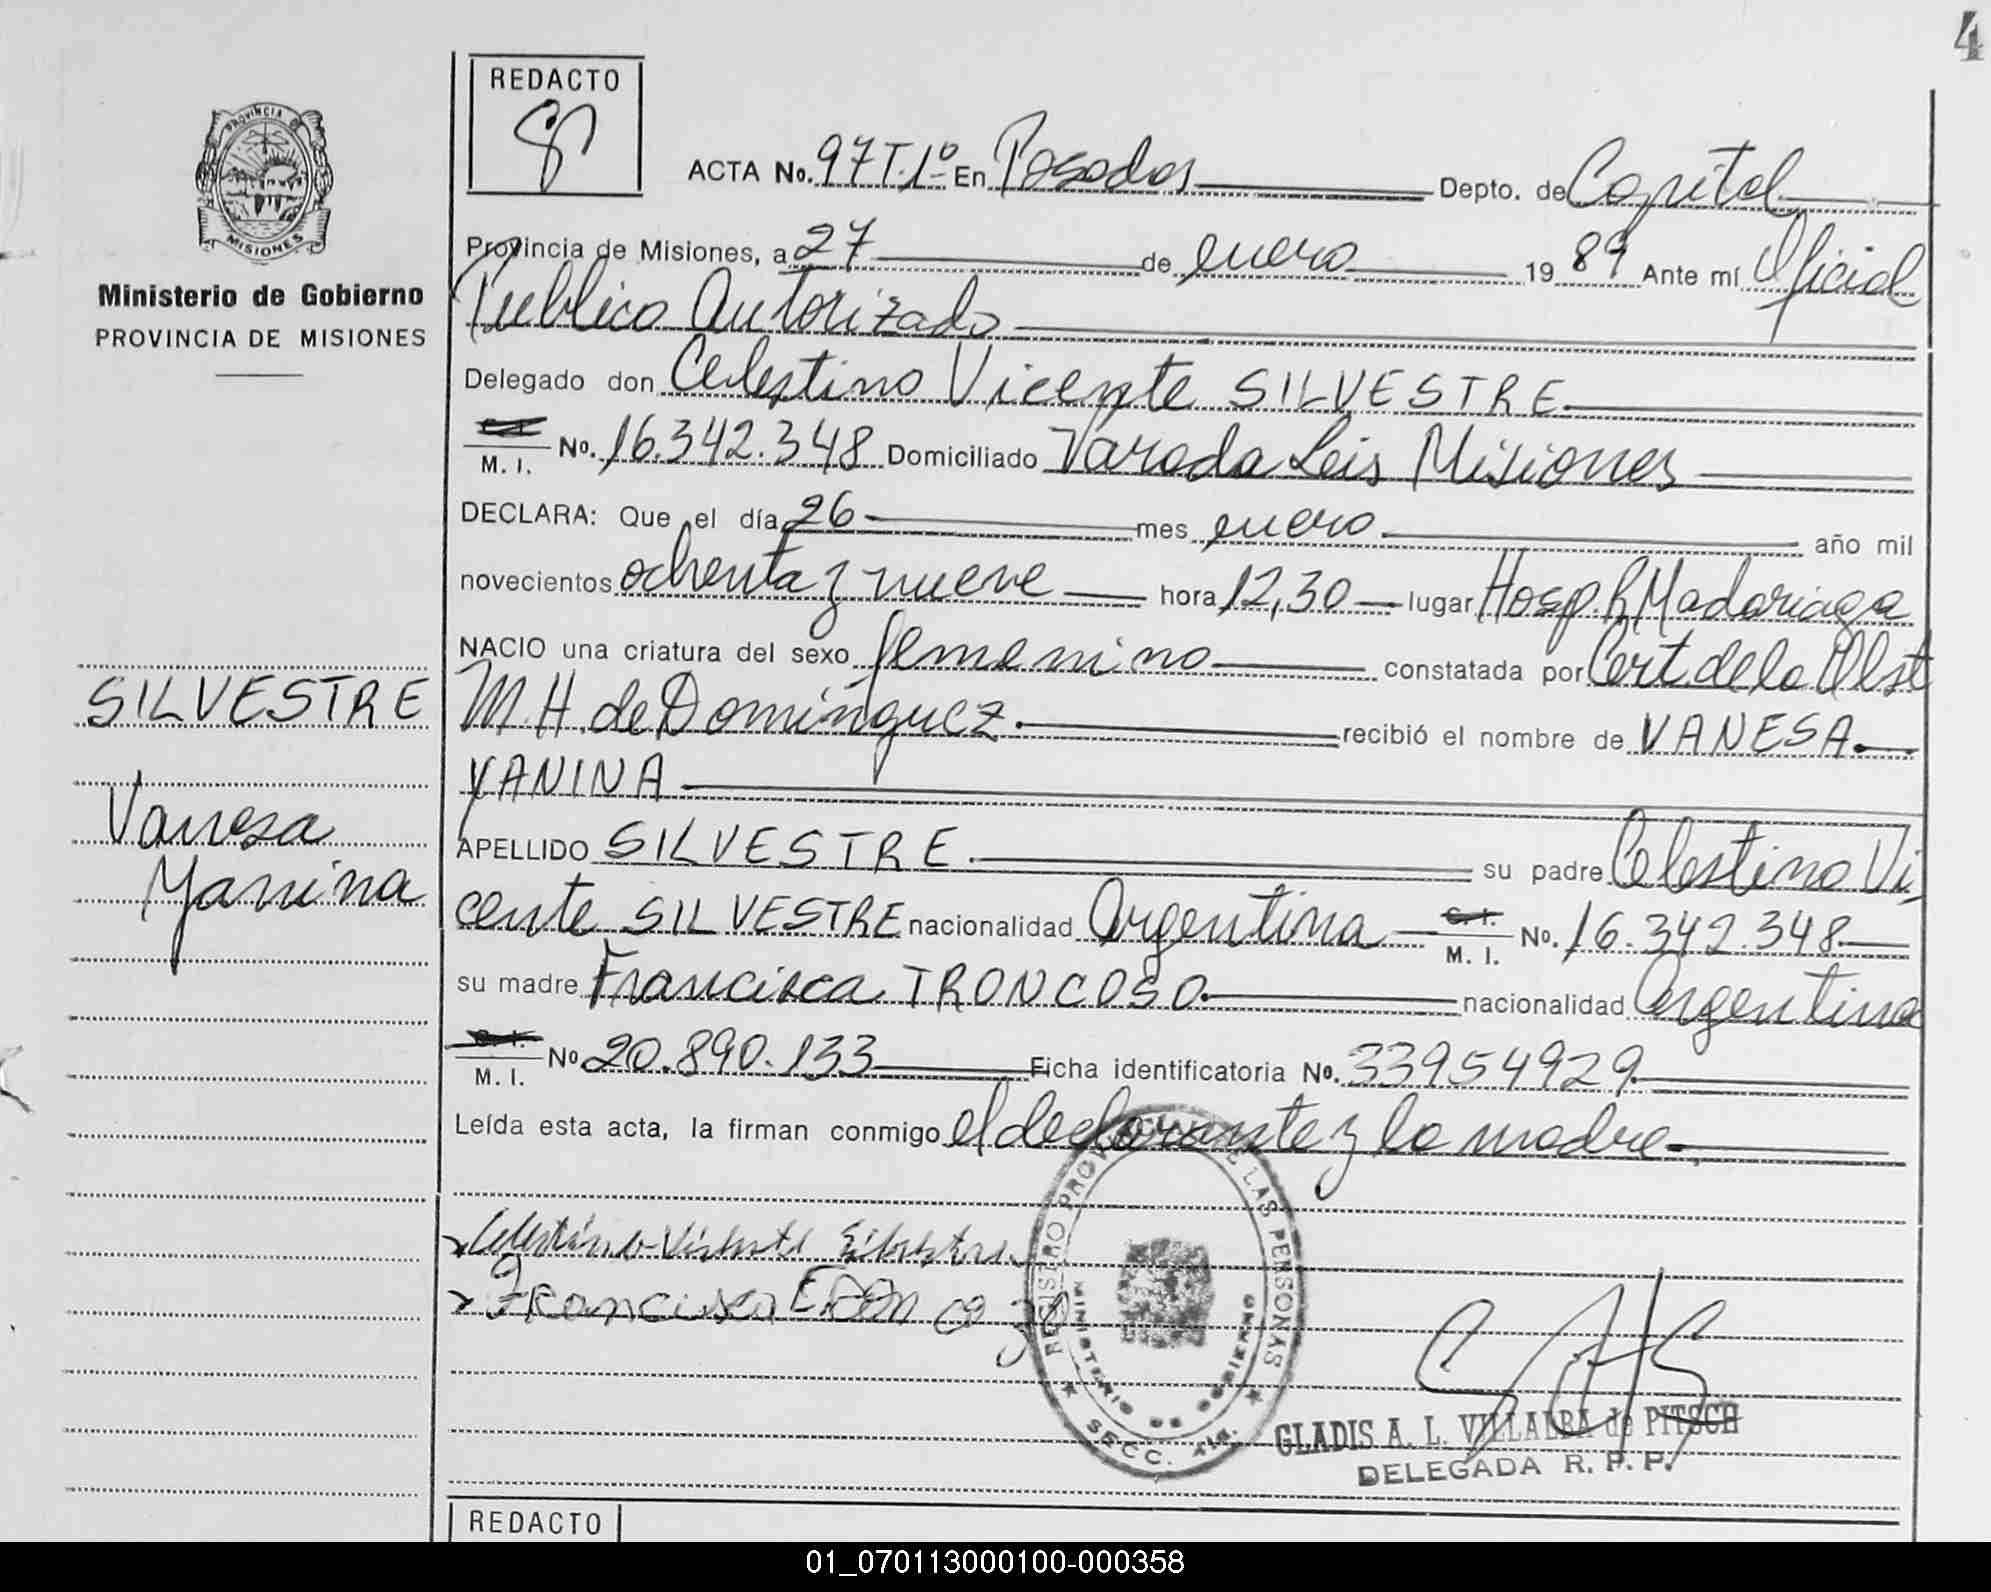 4
REDACTO
PROVINCIA DE
MISIONES
Ministerio de Gobierno
PROVINCIA DE MISIONES
ACTA No. 97 T.1º En Posadas Depto. de Capital
Provincia de Misiones, a 27 de enero 19 89 Ante mí Oficial
Publico Autorizado
Delegado don Celestino Vicente SILVESTRE
C. I.
M. I. No. 16.342.348 Domiciliado Misiones
DECLARA: Que el día 26 mes enero año mil
novecientos ochenta y nueve hora 12,30 lugar Hosp. R Madariaga
NACIO una criatura del sexo femenino constatada por Cert. de la Obst
M.H. de Dominguez. recibió el nombre de VANESA
YANINA
SILVESTRE
Vanesa
Yanina
APELLIDO SILVESTRE su padre Celestino Vi
cente SILVESTRE nacionalidad Argentina C. I.
M. I. No. 16.342.348
su madre Francisca TRONCOSO nacionalidad Argentina
C. I.
M. I. No 20.890.133 Ficha identificatoria No. 33954929
Leída esta acta, la firman conmigo el declarante y la madre
Celestino Vicente Silvestre
Francisca
REGISTRO PROVINCIAL DE LAS PERSONAS
MINISTERIO DE GOBIERNO
SECC. 4ta.
GLADIS A. L. VILLALBA de PITSCH
DELEGADA R. P. P.
REDACTO
01_070113000100-000358